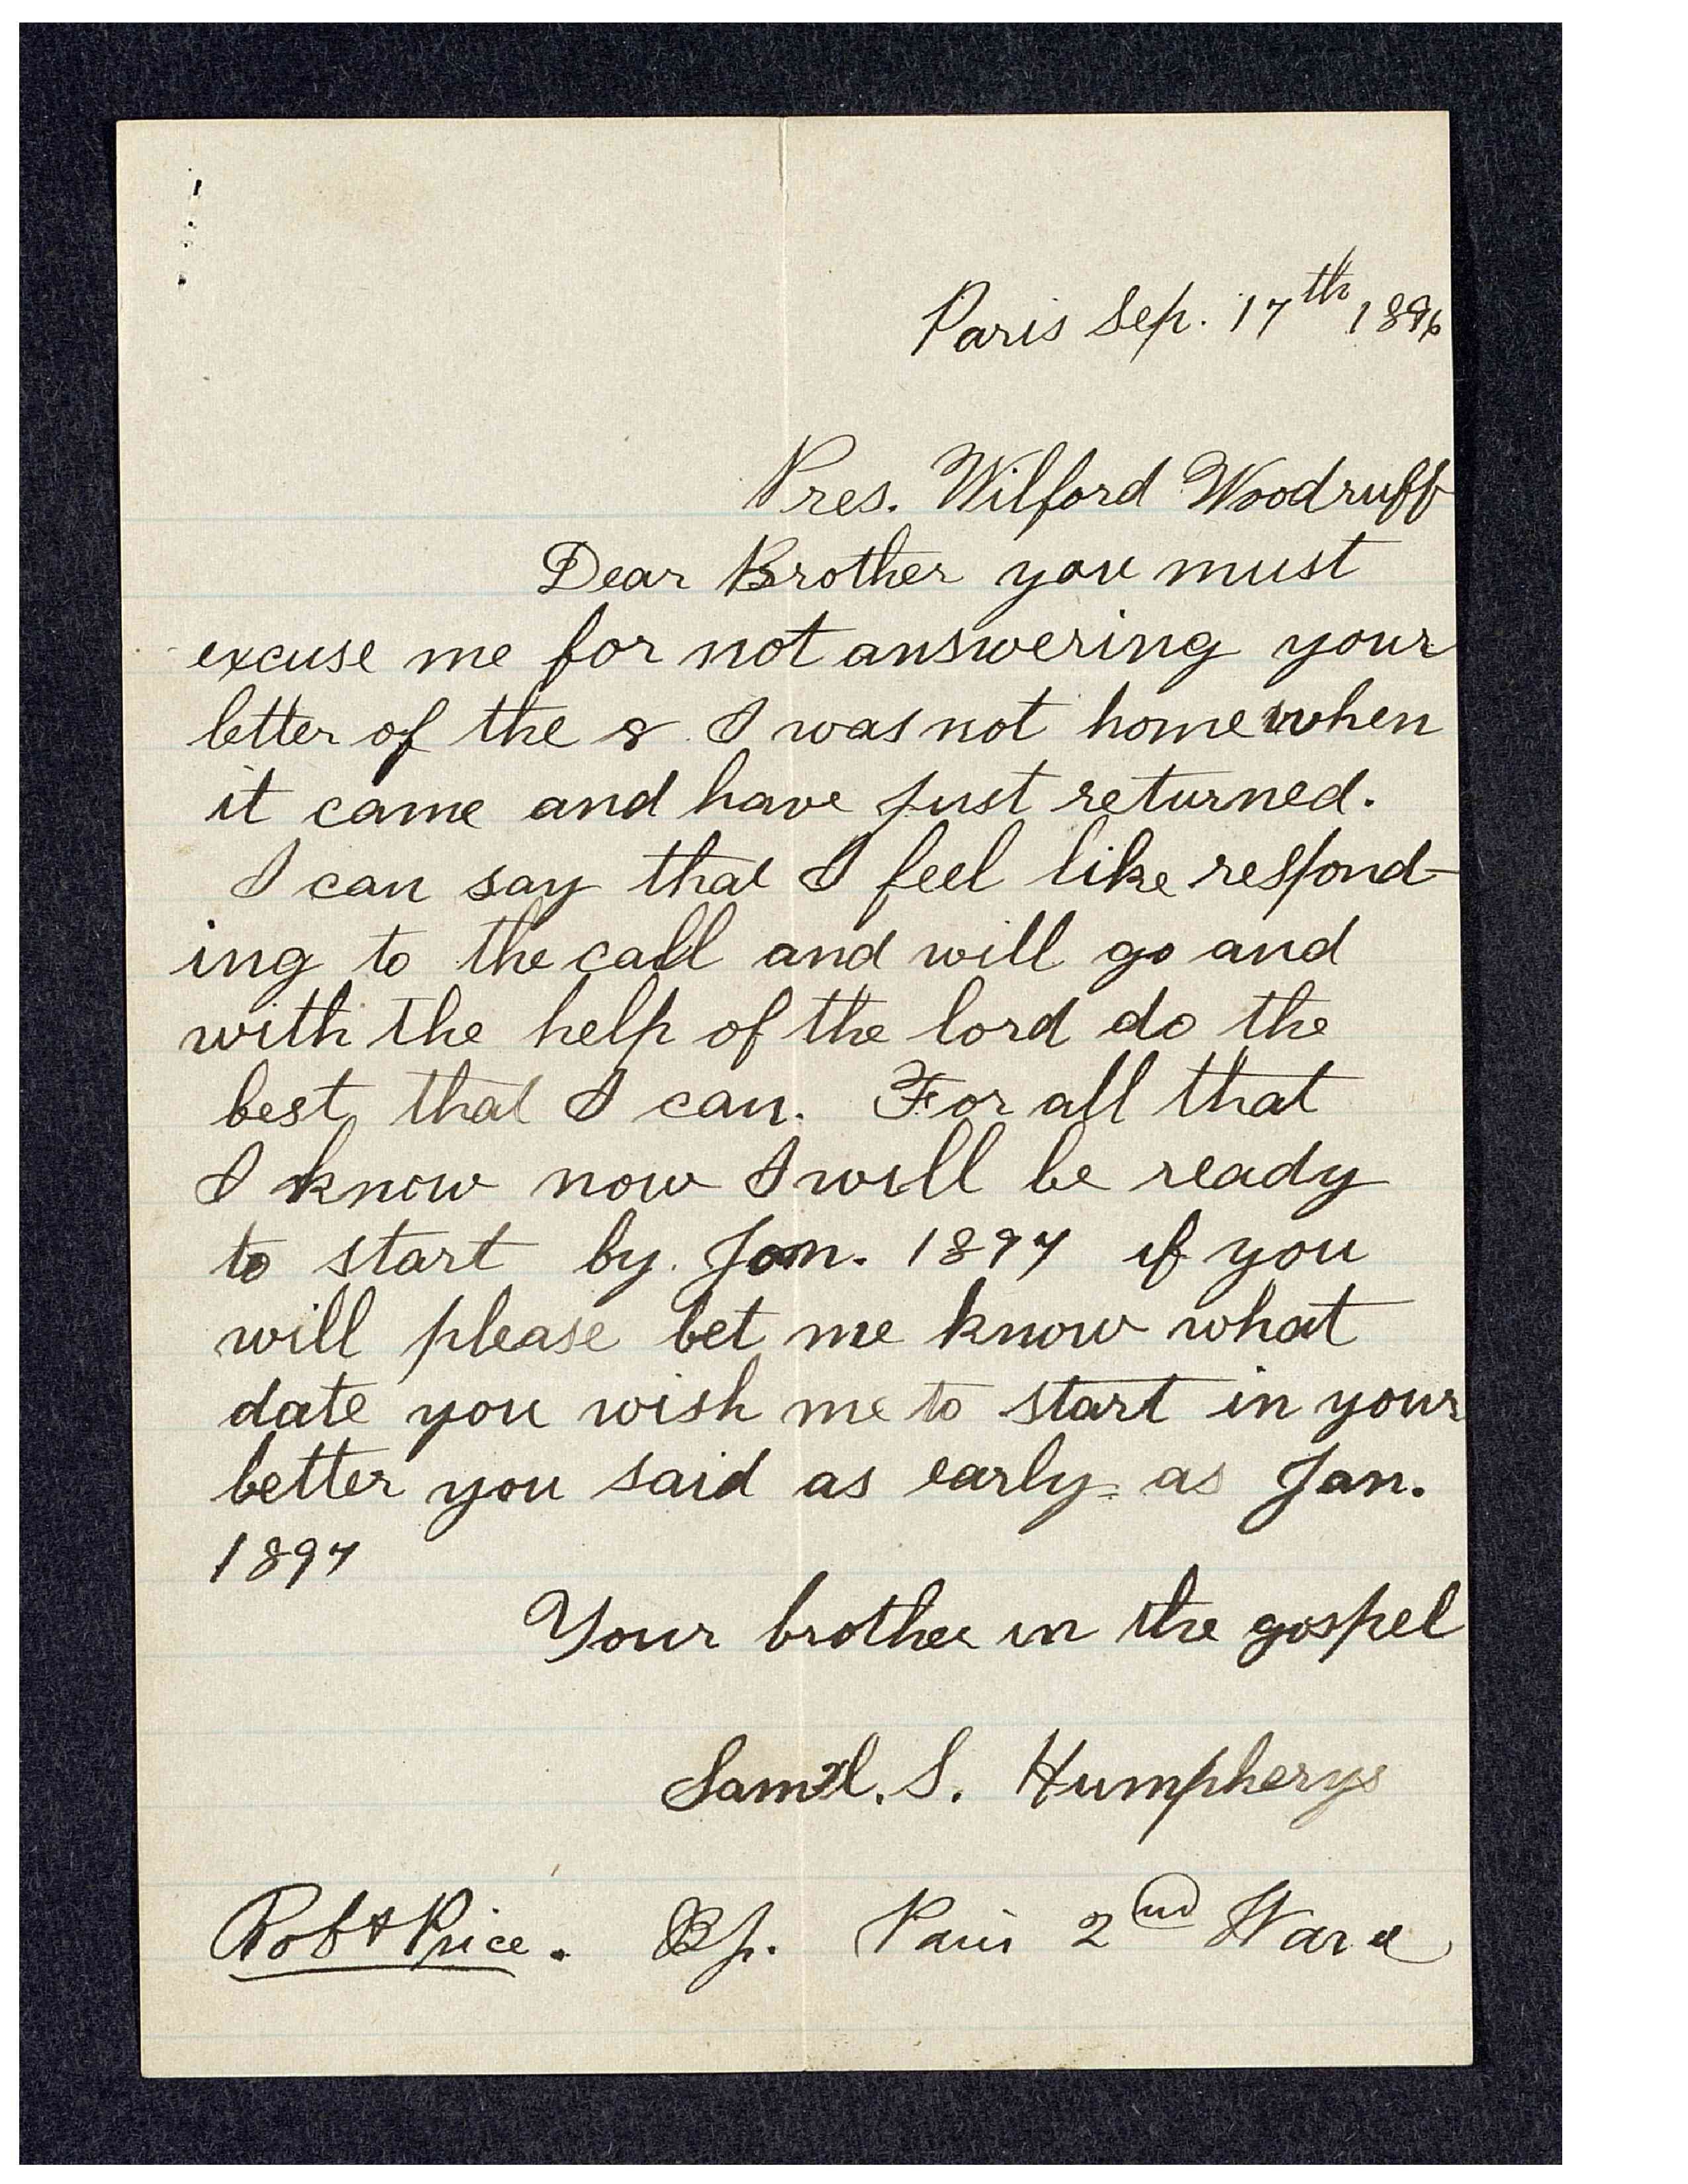 Paris Sep. 17th 1896
Pres. Wilford Woodruff
Dear Brother you must
excuse me for not answering your
letter of the 8 I was not home when
it came and have just returned.
I can say that I feel like respond-
ing to the call and will go and
with the help of the lord do the
best that I can. For all that
I know now I will be ready
to start by Jan. 1897 if you
will please let me know what
date you wish me to start in your
letter you said as early as Jan.
1897
Your brother in the gospel
Saml. S. Humpherys
Robt Price. Bp. Paris 2nd Ward